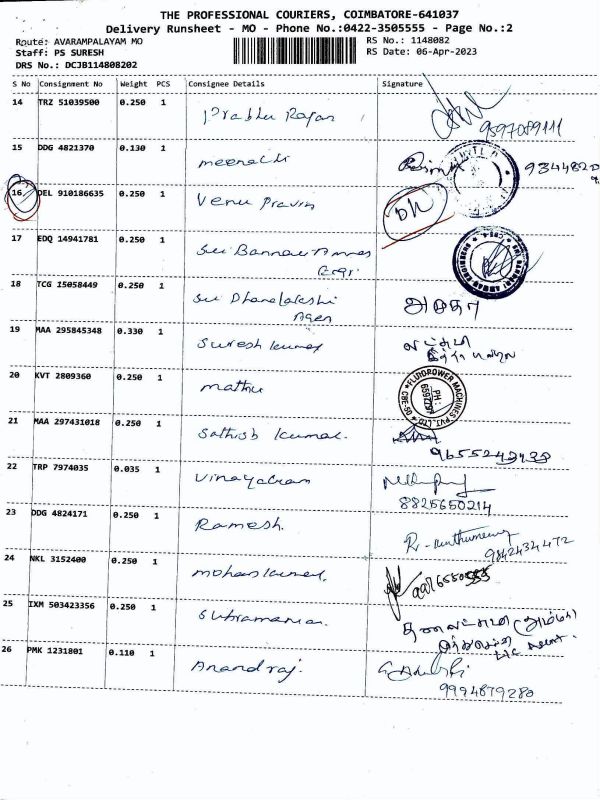 THE PROFESSIONAL COURIERS, COIMBATORE-641037
Delivery Runsheet - MO - Phone No.:0422-3505555 - Page No.:2
Route: AVARAMPALAYAM MO RS No.: 1148082
Staff: PS SURESH RS Date: 06-Apr-2023
DRS No.: DCJB114808202
S No Consignment No Weight PCS Consignee Details Signature
14 TRZ 51039500 0.250 1 Prabhu Rajan
9597089111
15 DDG 4821370 0.130 1 meenalchi 934482
16 DEL 910186635 0.250 1 Venu Pravin
17 EDQ 14941781 0.250 1 Sri Bannari Amman
18 TCG 15058449 0.250 1 Sri Dhanalakshmi
Agen
19 MAA 295845348 0.330 1 Suresh kumar
20 KVT 2809360 0.250 1 mathu
FLUIDPOWER MACHINES PVT. LTD. CBE-
PH:
21 MAA 297431018 0.250 1 Sathish kumar.
9655243438
22 TRP 7974035 0.035 1 Vinayakam
8825650214
23 DDG 4824171 0.250 1 Ramesh.
9842434472
24 NKL 3152400 0.250 1 mohankumar.
25 IXM 503423356 0.250 1 Subramanian
26 PMK 1231801 0.110 1 Anandraj.
9994879280